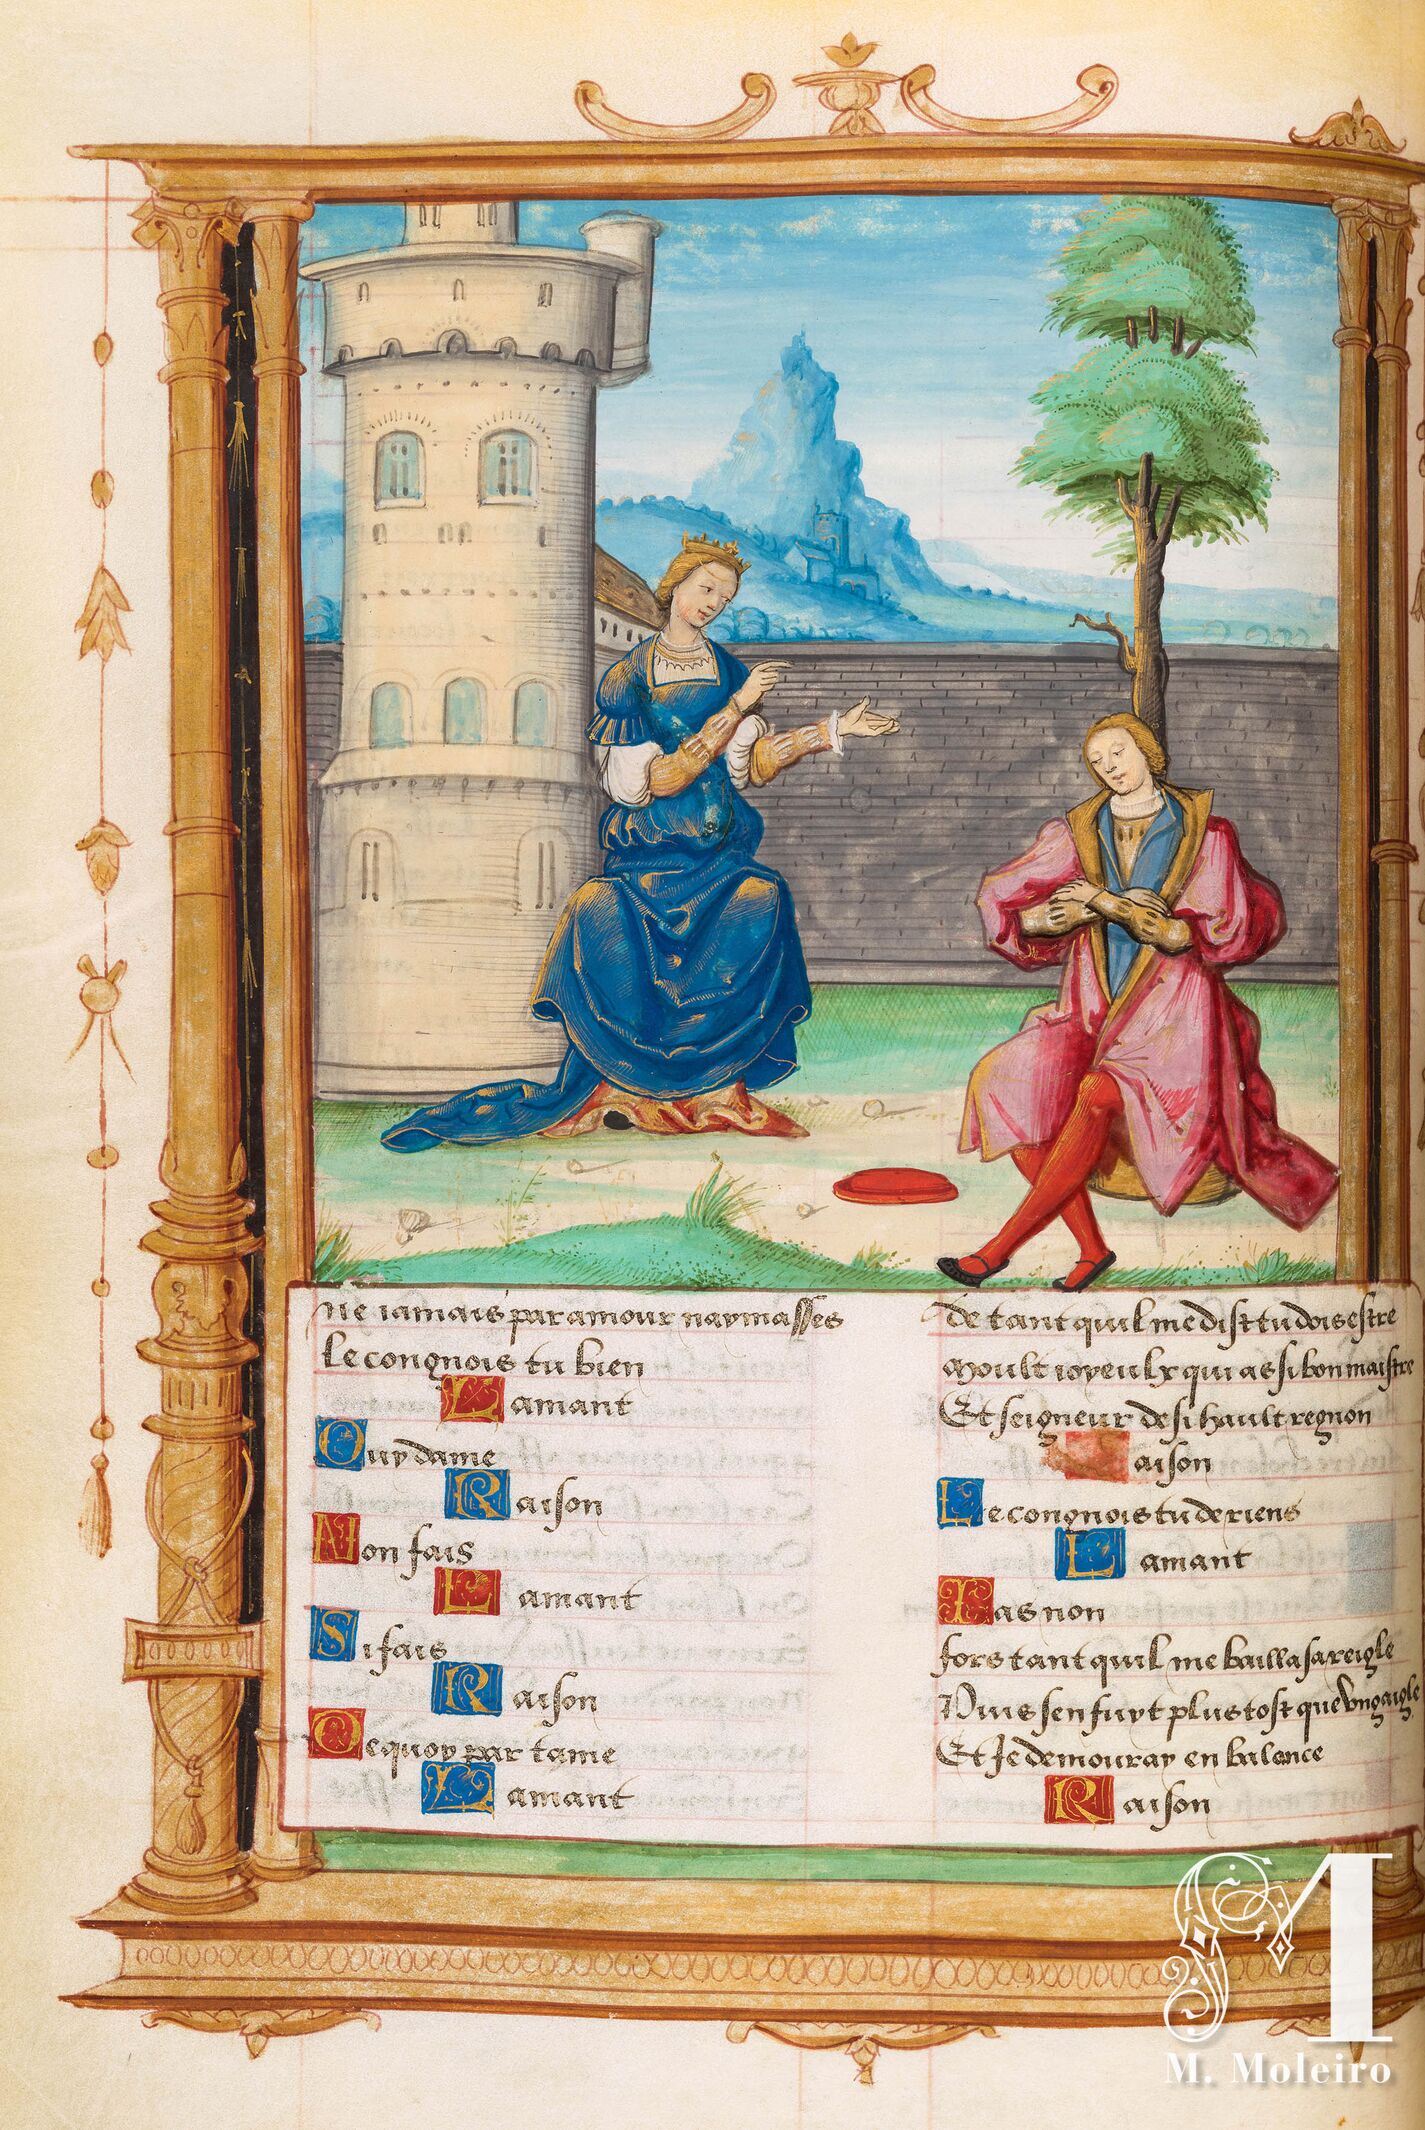 Ne iamais par amour naymasses
Le congnois tu bien
Lamant
Ouy dame
Raison
Non fais
Lamant
Si fais
Raison
De quoy par tame
Lamant
De tant quil me dist tu dois estre
Moult ioyeulx qui as si bon maistre
Et seigneur de si hault regnon
Raison
Le congnois tu de riens
Lamant
Ias non
fors tant quil me bailla sa reigle
Puis sen fuyt plustost que ung aigle
Et Je demouray en balance
Raison
M
M. Moleiro